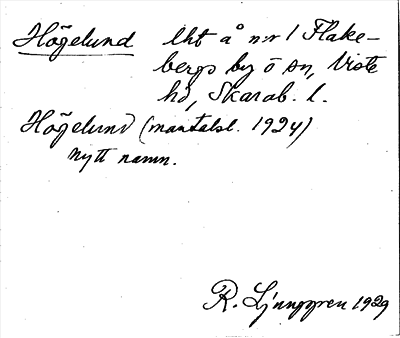 Högelund lht å nr 1 Flake-
bergs by o sn, Viste
hd, Skarab. l.
Högelund (mantalsl. 1924)
nytt namn.
R. Ljunggren 1929